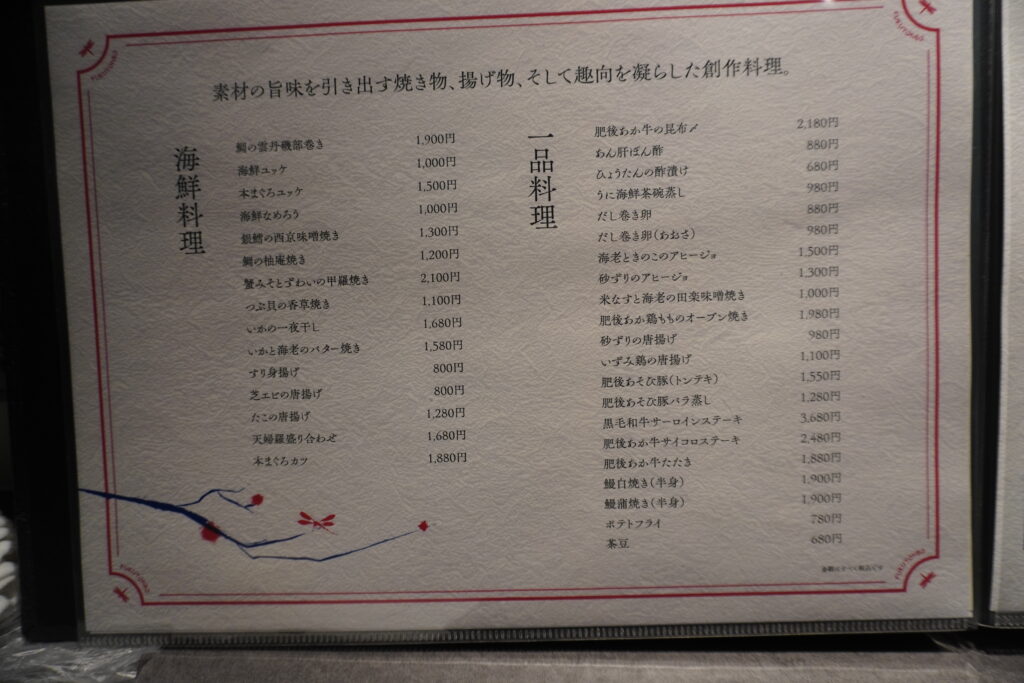 素材の旨味を引き出す焼き物、揚げ物、そして趣向を凝らした創作料理。
海鮮料理
鯛の雲丹磯部巻き 1,900円
海鮮ユッケ 1,000円
本まぐろユッケ 1,500円
海鮮なめろう 1,000円
銀鱈の西京味噌焼き 1,300円
鯛の柚庵焼き 1,200円
蟹みそとずわいの甲羅焼き 2,100円
つぶ貝の香草焼き 1,100円
いかの一夜干し 1,680円
いかと海老のバター焼き 1,580円
すり身揚げ 800円
芝エビの唐揚げ 800円
たこの唐揚げ 1,280円
天婦羅盛り合わせ 1,680円
本まぐろカツ 1,880円
一品料理
肥後あか牛の昆布〆 2,180円
あん肝ぽん酢 880円
ひょうたんの酢漬け 680円
うに海鮮茶碗蒸し 980円
だし巻き卵 880円
だし巻き卵(あおさ) 980円
海老ときのこのアヒージョ 1,500円
砂ずりのアヒージョ 1,300円
米なすと海老の田楽味噌焼き 1,000円
肥後あか鶏ももののオーブン焼き 1,980円
砂ずりの唐揚げ 980円
いずみ鶏の唐揚げ 1,100円
肥後あそび豚(トンテキ) 1,550円
肥後あそび豚バラ蒸し 1,280円
黒毛和牛サーロインステーキ 3,680円
肥後あか牛サイコロステーキ 2,480円
肥後あか牛たたき 1,880円
鰻白焼き(半身) 1,900円
鰻蒲焼き(半身) 1,900円
ポテトフライ 780円
茶豆 680円